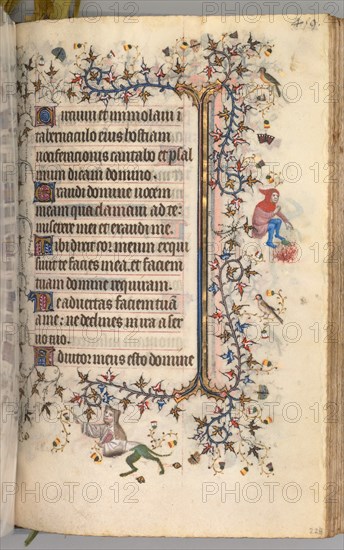 419.
Circuivi et immolavi i
tabernaculo eius hostiam
vociferacionis cantabo et psal
mum dicam domino.
Exaudi domine vocem
meam qua clamavi ad te:
miserere mei et exaudi me.
Tibi dixit cor meum exqui
sivit te facies mea. et faciem
tuam domine requiram.
Ne advertas faciem tuã
a me: ne declines in ira a ser
vo tuo.
Adiutor meus esto domine